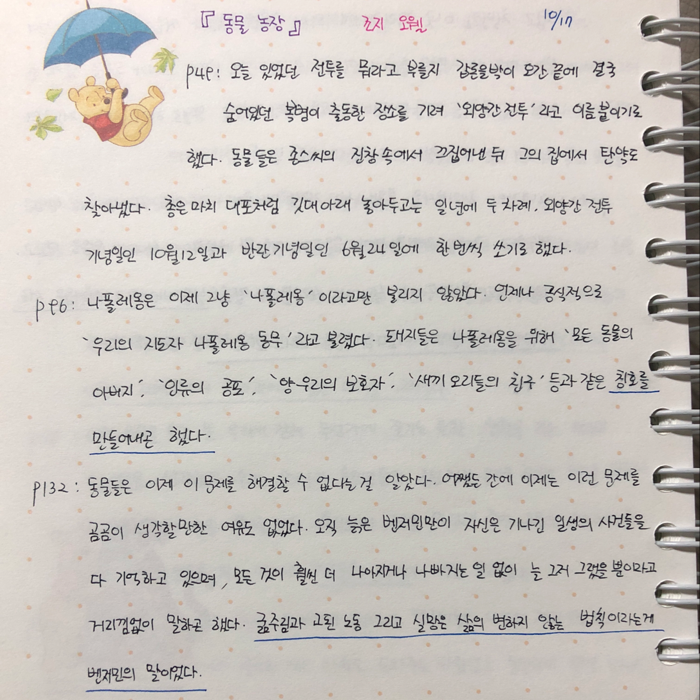 『동물 농장』 조지 오웰 10/17
p49: 오늘 있었던 전투를 뭐라고 부를지 갑론을박이 오간 끝에 결국
숨어있던 복병이 출동한 장소를 기려 '외양간 전투'라고 이름 붙이기로
했다. 동물들은 존스씨의 진창 속에서 끄집어낸 뒤 그의 집에서 탄약도
찾아냈다. 총은 마치 대포처럼 깃대 아래 놓아두고는 일년에 두 차례, 외양간 전투
기념일인 10월 12일과 반란 기념일인 6월 24일에 한번씩 쏘기로 했다.
p96: 나폴레옹은 이제 그냥 '나폴레옹'이라고만 불리지 않았다. 언제나 공식적으로
'우리의 지도자 나폴레옹 동무'라고 불렸다. 돼지들은 나폴레옹을 위해 '모든 동물의
아버지', '인류의 공포', '양 우리의 보호자', '새끼 오리들의 친구' 등과 같은 칭호를
만들어내곤 했다.
p132: 동물들은 이제 이 문제를 해결할 수 없다는 걸 알았다. 어쨌든 간에 이제는 이런 문제를
곰곰이 생각할 만한 여유도 없었다. 오직 늙은 벤저민만이 자신은 기나긴 일생의 사건들을
다 기억하고 있으며, 모든 것이 훨씬 더 나아지거나 나빠지는 일 없이 늘 그저 그랬을 뿐이라고
거리낌없이 말하곤 했다. 굶주림과 고된 노동 그리고 실망은 삶의 변하지 않는 법칙이라는게
벤저민의 말이었다.